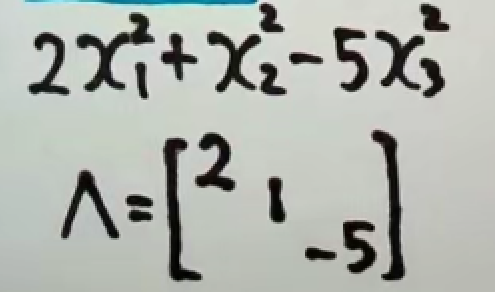 2x₁² + x₂² - 5x₃²
Λ = [2 1 -5]